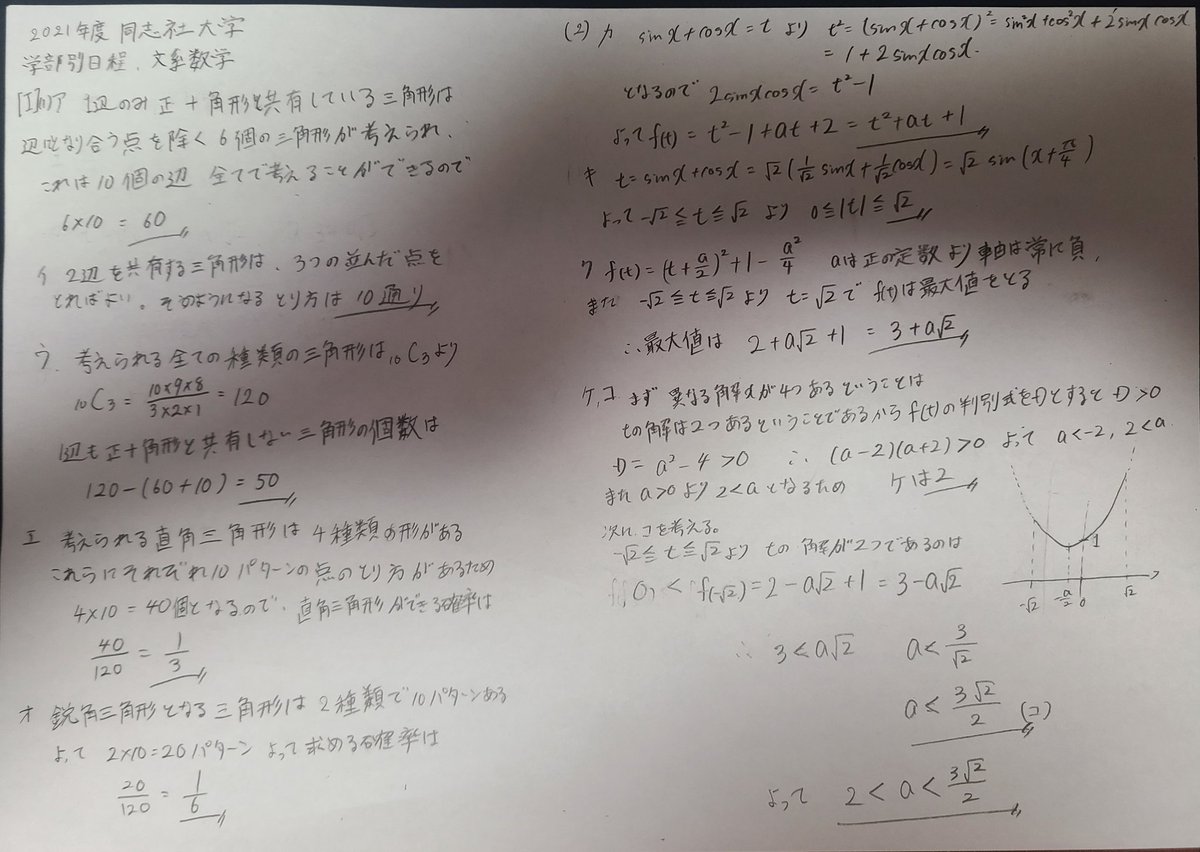 2021年度 同志社大学
学部別日程、文系数学
[I](1)ア 1辺のみ正十角形と共有している三角形は
辺となり合う点を除く6個の三角形が考えられ、
これは10個の辺 全てで考えることができるので
6×10 = 60
イ 2辺を共有する三角形は、3つの並んだ点を
とればよい。そのようになるとり方は10通り
ウ 考えられる全ての種類の三角形は 10C3 より
10C3 = 10×9×8/3×2×1 = 120
1辺も正十角形と共有しない三角形の個数は
120-(60+10) = 50
エ 考えられる直角三角形は4種類の形がある
これらにそれぞれ10パターンの点のとり方があるため
4×10=40個となるので、直角三角形ができる確率は
40/120 = 1/3
オ 鋭角三角形となる三角形は2種類で10パターンある
よって 2×10=20パターン よって求める確率は
20/120 = 1/6
(2) カ sinx+cosx=t より t²=(sinx+cosx)²=sin²x+cos²x+2sinxcosx
=1+2sinxcosx.
となるので 2sinxcosx=t²-1
よってf(t)=t²-1+at+2=t²+at+1
キ t=sinx+cosx=√2(1/√2 sinx+1/√2 cosx)=√2 sin(x+π/4)
よって-√2≦t≦√2 より 0≦|t|≦√2
ク f(t)=(t+a/2)²+1-a²/4 aは正の定数より軸は常に負、
また -√2≦t≦√2より t=√2でf(t)は最大値をとる
∴最大値は 2+a√2+1 = 3+a√2
ケ,コ まず 異なる解xが4つあるということは
tの解は2つあるということであるからf(t)の判別式をDとするとD>0
D=a²-4>0 ∴ (a-2)(a+2)>0 よって a<-2, 2<a
また a>0より 2<aとなるため ケは2
次に、コを考える。
-√2≦t≦√2より tの解が2つであるのは
0<f(-√2)=2-a√2+1=3-a√2
1
-√2 -a/2 0 √2
∴ 3<a√2 a<3/√2
a<3√2/2 (コ)
よって 2<a<3√2/2